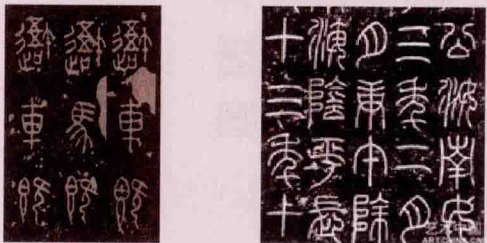 䢒車既
䢒馬既
䢒車既
公汝南女
三年二月
月庚午除
海陰平長
十三年十
艺术中国